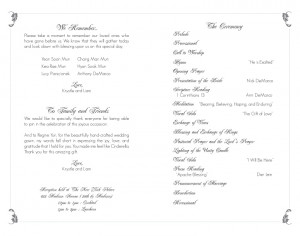 We Remember...
Please take a moment to remember our loved ones who
have gone before us. We know that they will gather today
and look down with blessing upon us on this special day.
Yeon Soon Mun
Chang Man Mun
Kyu Bae Mun
Hyon Sook Mun
Lucy Franciosek
Anthony DeMarco
Love,
Krystle and Liam
To Family and Friends,
We would like to specially thank everyone for being able
to join in the celebration of this joyous occasion.
And to Regine Yan, for the beautiful hand-crafted wedding
gown. No words fall short in expressing the joy, love, and
gratitude that I hold for you. You made me feel like Cinderella.
Thank you for this amazing gift.
Love,
Krystle and Liam
Reception held at The New York Palace
455 Madison Avenue (50th & Madison)
12pm to 1pm - Cocktail
1pm to 5pm - Luncheon
The Ceremony
Prelude
Processional
Call to Worship
Hymn
"He is Exalted"
Opening Prayer
Presentation of the Bride
Nick DeMarco
Scripture Reading
1 Corinthians 13
Ann DeMarco
Meditation
"Bearing, Believing, Hoping, and Enduring"
Vocal Solo
"The Gift of Love"
Exchange of Vows
Blessing and Exchange of Rings
Pastoral Prayer and the Lord's Prayer
Lighting of the Unity Candle
Vocal Solo
"I Will Be Here"
Prose Reading
"Apache Blessing"
Dan Lam
Pronouncement of Marriage
Benediction
Recessional